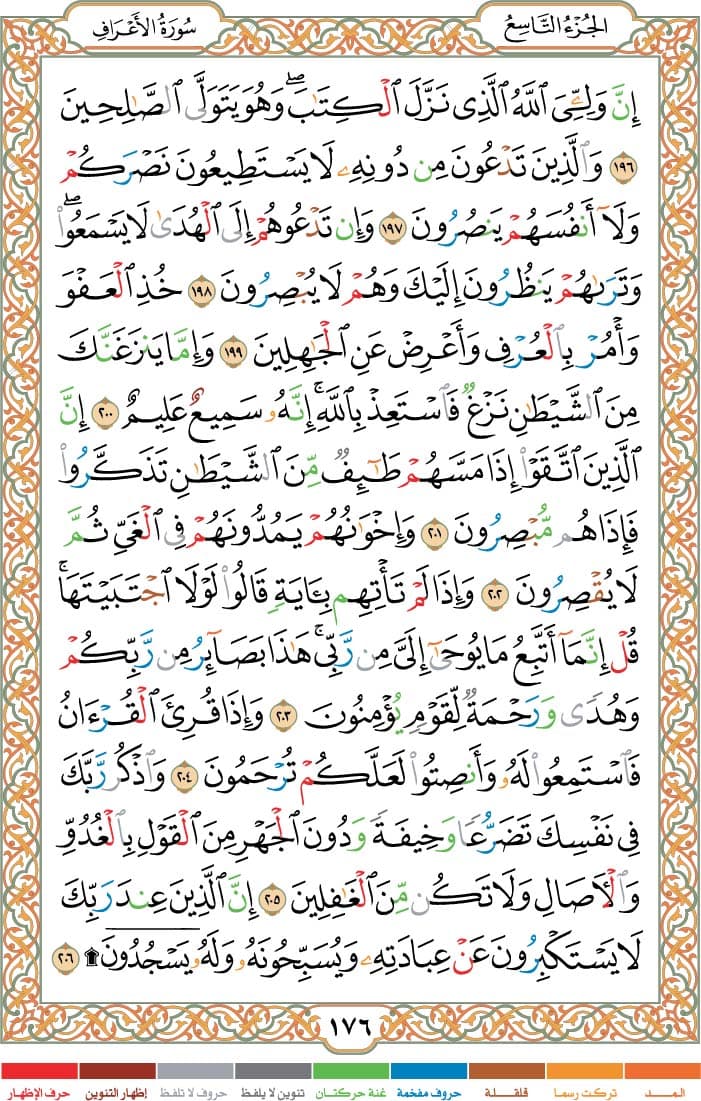 الجُزْءُ التَّاسِعُ
سُورَةُ الأَعْرَافِ
إِنَّ وَلِـِّۧيَ ٱللَّهُ ٱلَّذِى نَزَّلَ ٱلْكِتَٰبَۖ وَهُوَ يَتَوَلَّى ٱلصَّٰلِحِينَ
١٩٦ وَٱلَّذِينَ تَدْعُونَ مِن دُونِهِۦ لَا يَسْتَطِيعُونَ نَصْرَكُمْ
وَلَآ أَنفُسَهُمْ يَنصُرُونَ ١٩٧ وَإِن تَدْعُوهُمْ إِلَى ٱلْهُدَىٰ لَا يَسْمَعُوا۟ۖ
وَتَرَىٰهُمْ يَنظُرُونَ إِلَيْكَ وَهُمْ لَا يُبْصِرُونَ ١٩٨ خُذِ ٱلْعَفْوَ
وَأْمُرْ بِٱلْعُرْفِ وَأَعْرِضْ عَنِ ٱلْجَٰهِلِينَ ١٩٩ وَإِمَّا يَنزَغَنَّكَ
مِنَ ٱلشَّيْطَٰنِ نَزْغٌ فَٱسْتَعِذْ بِٱللَّهِۚ إِنَّهُۥ سَمِيعٌ عَلِيمٌ ٢٠٠ إِنَّ
ٱلَّذِينَ ٱتَّقَوْا۟ إِذَا مَسَّهُمْ طَٰٓئِفٌ مِّنَ ٱلشَّيْطَٰنِ تَذَكَّرُوا۟
فَإِذَا هُم مُّبْصِرُونَ ٢٠١ وَإِخْوَٰنُهُمْ يَمُدُّونَهُمْ فِى ٱلْغَىِّ ثُمَّ
لَا يُقْصِرُونَ ٢٠٢ وَإِذَا لَمْ تَأْتِهِم بِـَٔايَةٍ قَالُوا۟ لَوْلَا ٱجْتَبَيْتَهَاۚ
قُلْ إِنَّمَآ أَتَّبِعُ مَا يُوحَىٰٓ إِلَىَّ مِن رَّبِّىۚ هَٰذَا بَصَآئِرُ مِن رَّبِّكُمْ
وَهُدًى وَرَحْمَةٌ لِّقَوْمٍ يُؤْمِنُونَ ٢٠٣ وَإِذَا قُرِئَ ٱلْقُرْءَانُ
فَٱسْتَمِعُوا۟ لَهُۥ وَأَنصِتُوا۟ لَعَلَّكُمْ تُرْحَمُونَ ٢٠٤ وَٱذْكُر رَّبَّكَ
فِى نَفْسِكَ تَضَرُّعًا وَخِيفَةً وَدُونَ ٱلْجَهْرِ مِنَ ٱلْقَوْلِ بِٱلْغُدُوِّ
وَٱلْءَاصَالِ وَلَا تَكُن مِّنَ ٱلْغَٰفِلِينَ ٢٠٥ إِنَّ ٱلَّذِينَ عِندَ رَبِّكَ
لَا يَسْتَكْبِرُونَ عَنْ عِبَادَتِهِۦ وَيُسَبِّحُونَهُۥ وَلَهُۥ يَسْجُدُونَ ۩ ٢٠٦
١٧٦
المـــد تركت رسما قلقـلـة حروف مفخمة غنة حركتـان تنوين لا يلفظ حروف لا تلفظ إظهار التنوين حرف الإظهار